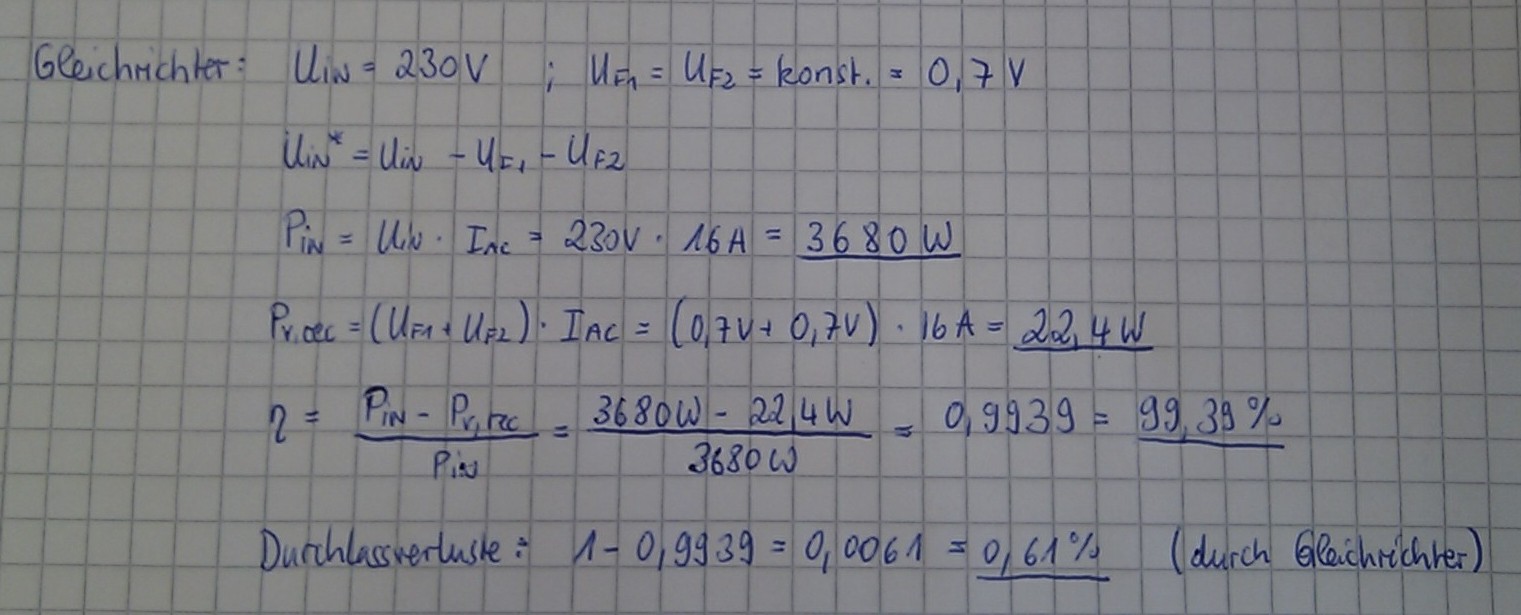 Gleichrichter: UIN = 230V ; UF1 = UF2 = konst. = 0,7 V
UIN* = UIN - UF1 - UF2
PIN = UIN · IAC = 230V · 16A = 3680 W
Pv,rec = (UF1 + UF2) · IAC = (0,7V + 0,7V) · 16A = 22,4W
η = PIN - Pv,rec / PIN = 3680W - 22,4W / 3680W = 0,9939 = 99,39%
Durchlassverluste: 1 - 0,9939 = 0,0061 = 0,61% (durch Gleichrichter)